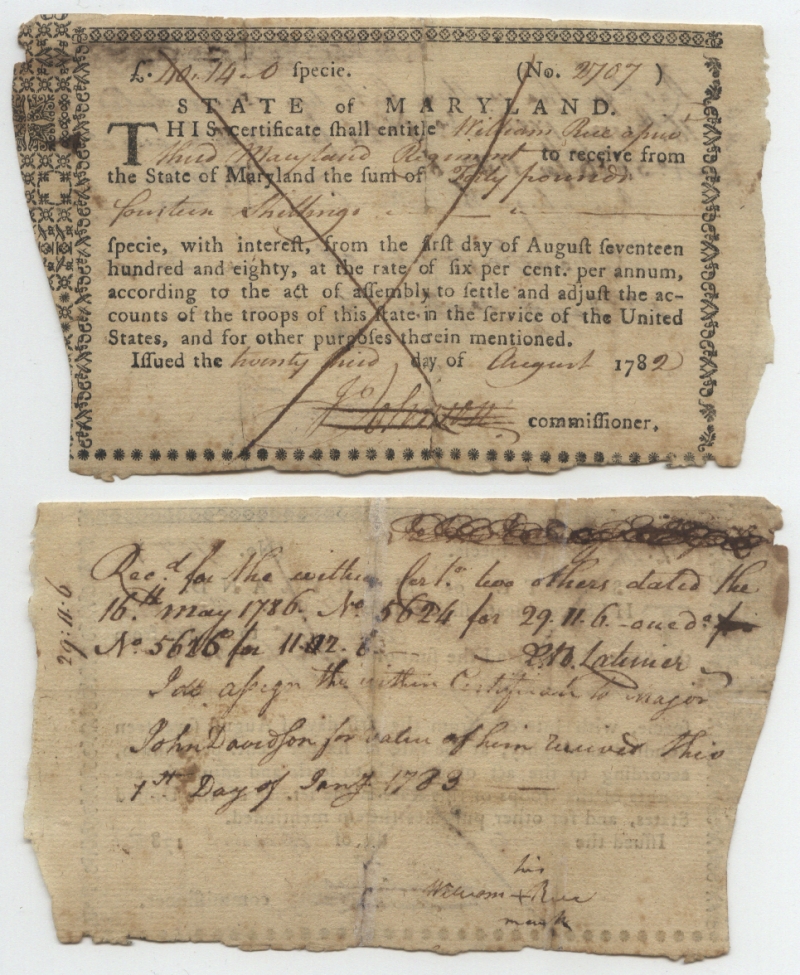 £. 40.14.0 specie. (No. 2707)
STATE of MARYLAND.
THIS certificate shall entitle William Rice
third Maryland Regiment to receive from
the State of Maryland the sum of Forty pounds
fourteen Shillings
specie, with interest, from the first day of August seventeen
hundred and eighty, at the rate of six per cent. per annum,
according to the act of assembly to settle and adjust the ac-
counts of the troops of this state in the service of the United
States, and for other purposes therein mentioned.
Issued the twenty third day of August 1782
commissioner.
Rec.d for the within Cert. two others dated the
16.th may 1786. No. 5624 for 29.11.6
No. 5626 for 11.02.6 Latimer
29:11:6
I do assign the within Certificate to Major
John Davidson for value of him received this
1st Day of Jany 1783
his
William + Rice
mark